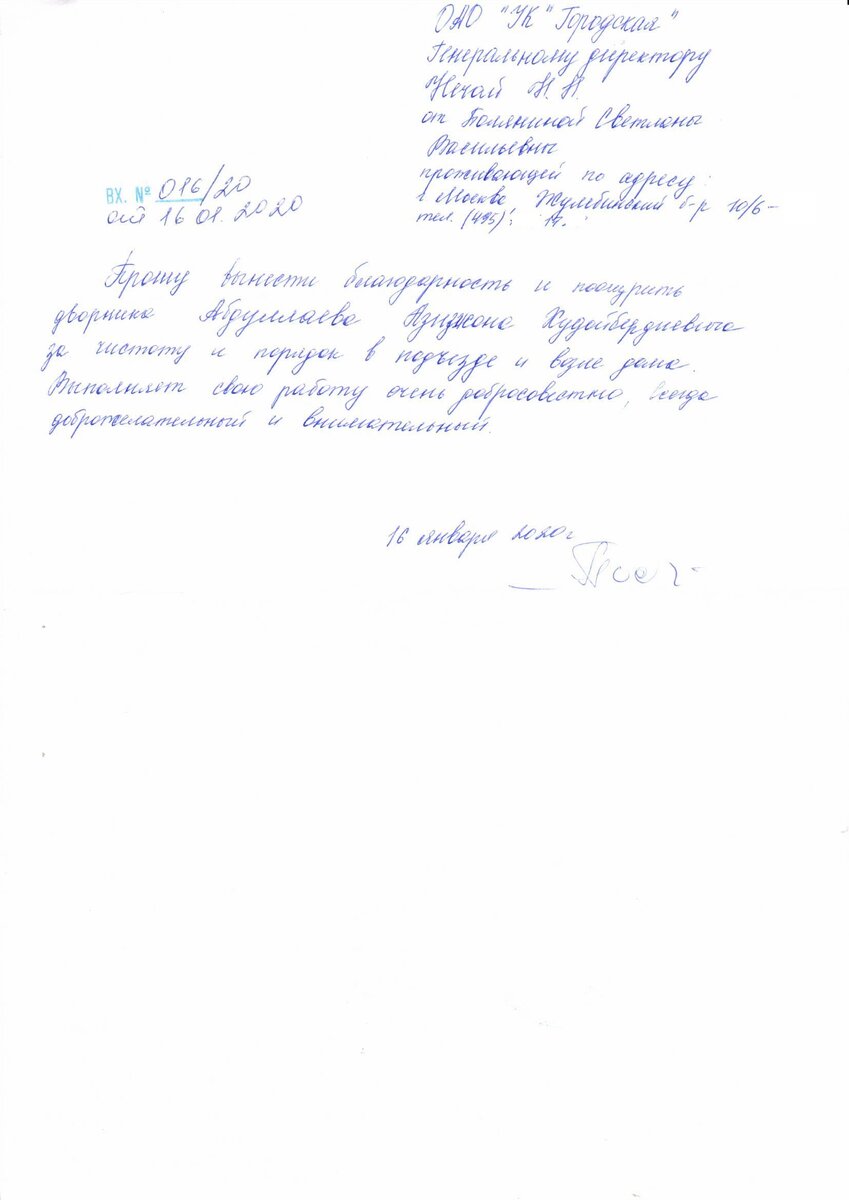 ОАО "УК "Городская"
Генеральному директору
Нечай Н.Н.
от Боляниной Светланы
Васильевны
проживающей по адресу:
г Москва Жулебинский б-р 10/6-
тел. (495) 17.
ВХ. № 016/20
от 16 01. 2020
Прошу вынести благодарность и поощрить
дворника Абдуллаева Азиджона Худойбердиевича
за чистоту и порядок в подъезде и возле дома.
Выполняет свою работу очень добросовестно, всегда
доброжелательный и внимательный.
16 января 2020г